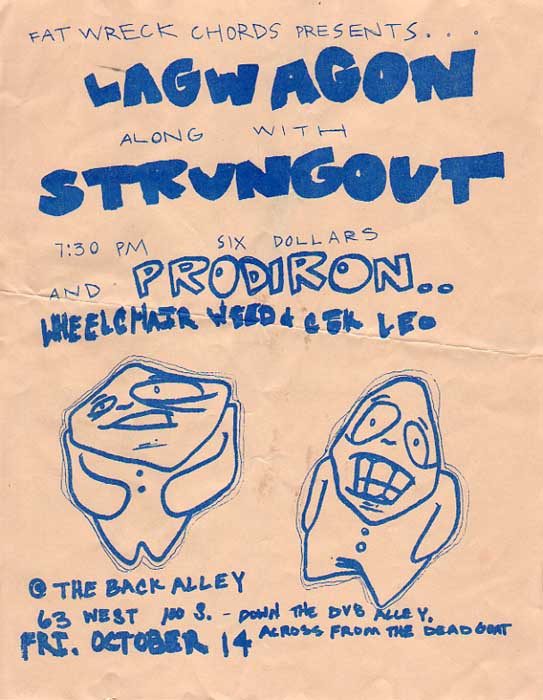 FAT WRECK CHORDS PRESENTS. . .
LAGWAGON
ALONG WITH
STRUNGOUT
7:30 PM SIX DOLLARS
AND PRODIRON..
WHEELCHAIR WEED & LEO
@ THE BACK ALLEY
63 WEST 100 S. - DOWN THE DVB ALLEY.
ACROSS FROM THE DEAD GOAT
FRI. OCTOBER 14